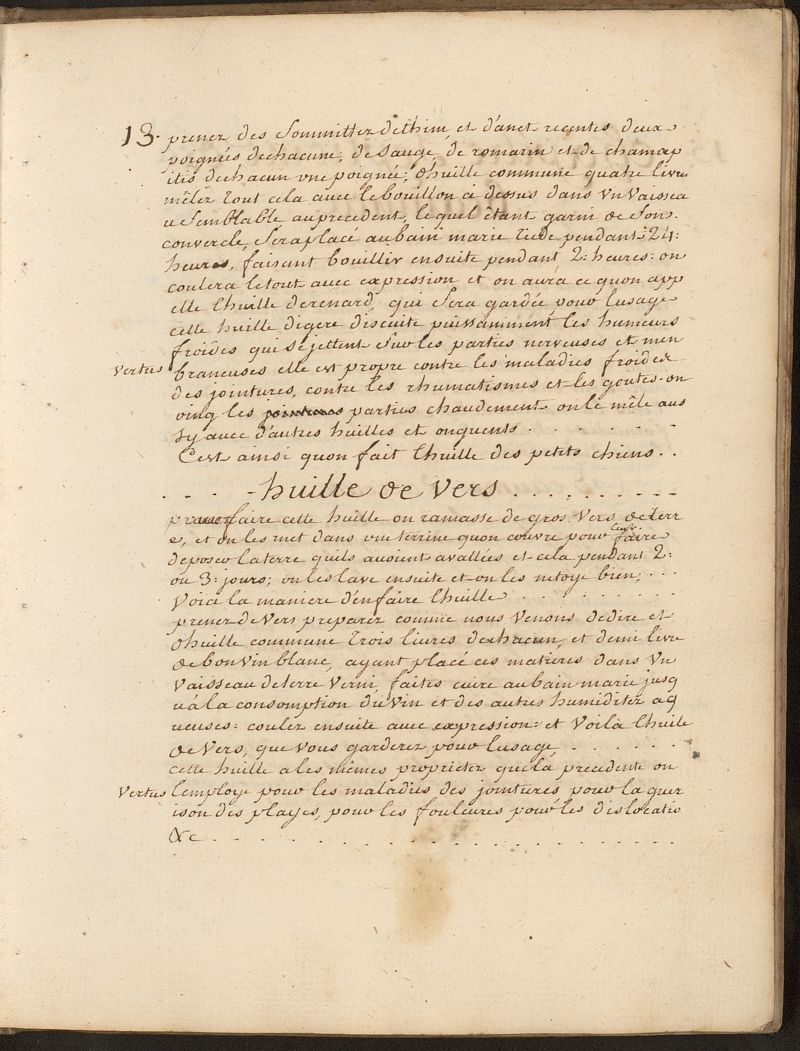 13. prenez des Sommittez dethim, et d'anet recentes deux
poignées dechacune; de Sauge, de romarin et de chamap
ités dechacun vne poignée; dhuille commune quatre livre
mêlez tout cela avec lebouillon ci dessus dans vn Vaissea
u Semblable auprecedent, le quel êtant garni de Son
convercle, Seraplacé aubain marie tiede pendant 24:
heures, faisant bouillir ensuite pendant 2: heures: on
coulera letout avec expression et on aura ce quon app
elle lhuille derenard, qui Sera gardée pour lusage
cette huille digere discute puissamment les humeurs
froides qui Sejettent Sur les parties nerveuses et mem
Vertus braneuses elle est propre contre les maladies froides
des jointures, contre les rhumatismes et les goutes. on
oing les parties chaudement on le mêle aus
Sy avec d'autres huilles et onguents . . . . . . .
Cest ainsi quon fait lhuille des petits chiens . .
. . . . huille de Vers . . . . . . . . .
pour faire cette huille on ramasse de gros Vers de terr
e, et on les met dans vne terrine quon couvre pour leur faire
deposer laterre quils avoient avallées et cela pendant 2:
ou 3: jours; on les lave ensuite et on les netoye bien; . . .
Voici la maniere d'en faire lhuille . . . . . . . .
prenez de Vers preparez comme nous Venons dedire et
dhuille commune trois livres dechacun, et demi livre
de bon vin blanc, ayant placé ces matieres dans vn
Vaisseau de terre Verni, faites cuire aubain marie jusq
u'a la consomption du vin et des autres humiditez aq
ueuses: coulez ensuite avec expression: et Voilà lhuile
de Vers, que vous garderez pour lusage . . . . . .
cette huille a les mêmes proprietez que la precedente on
Vertus lemploye pour les maladies des jointures pour la guer
ison des playes, pour les fouleures pour les dislocatio
&c . . . . . . . . . . . . . .